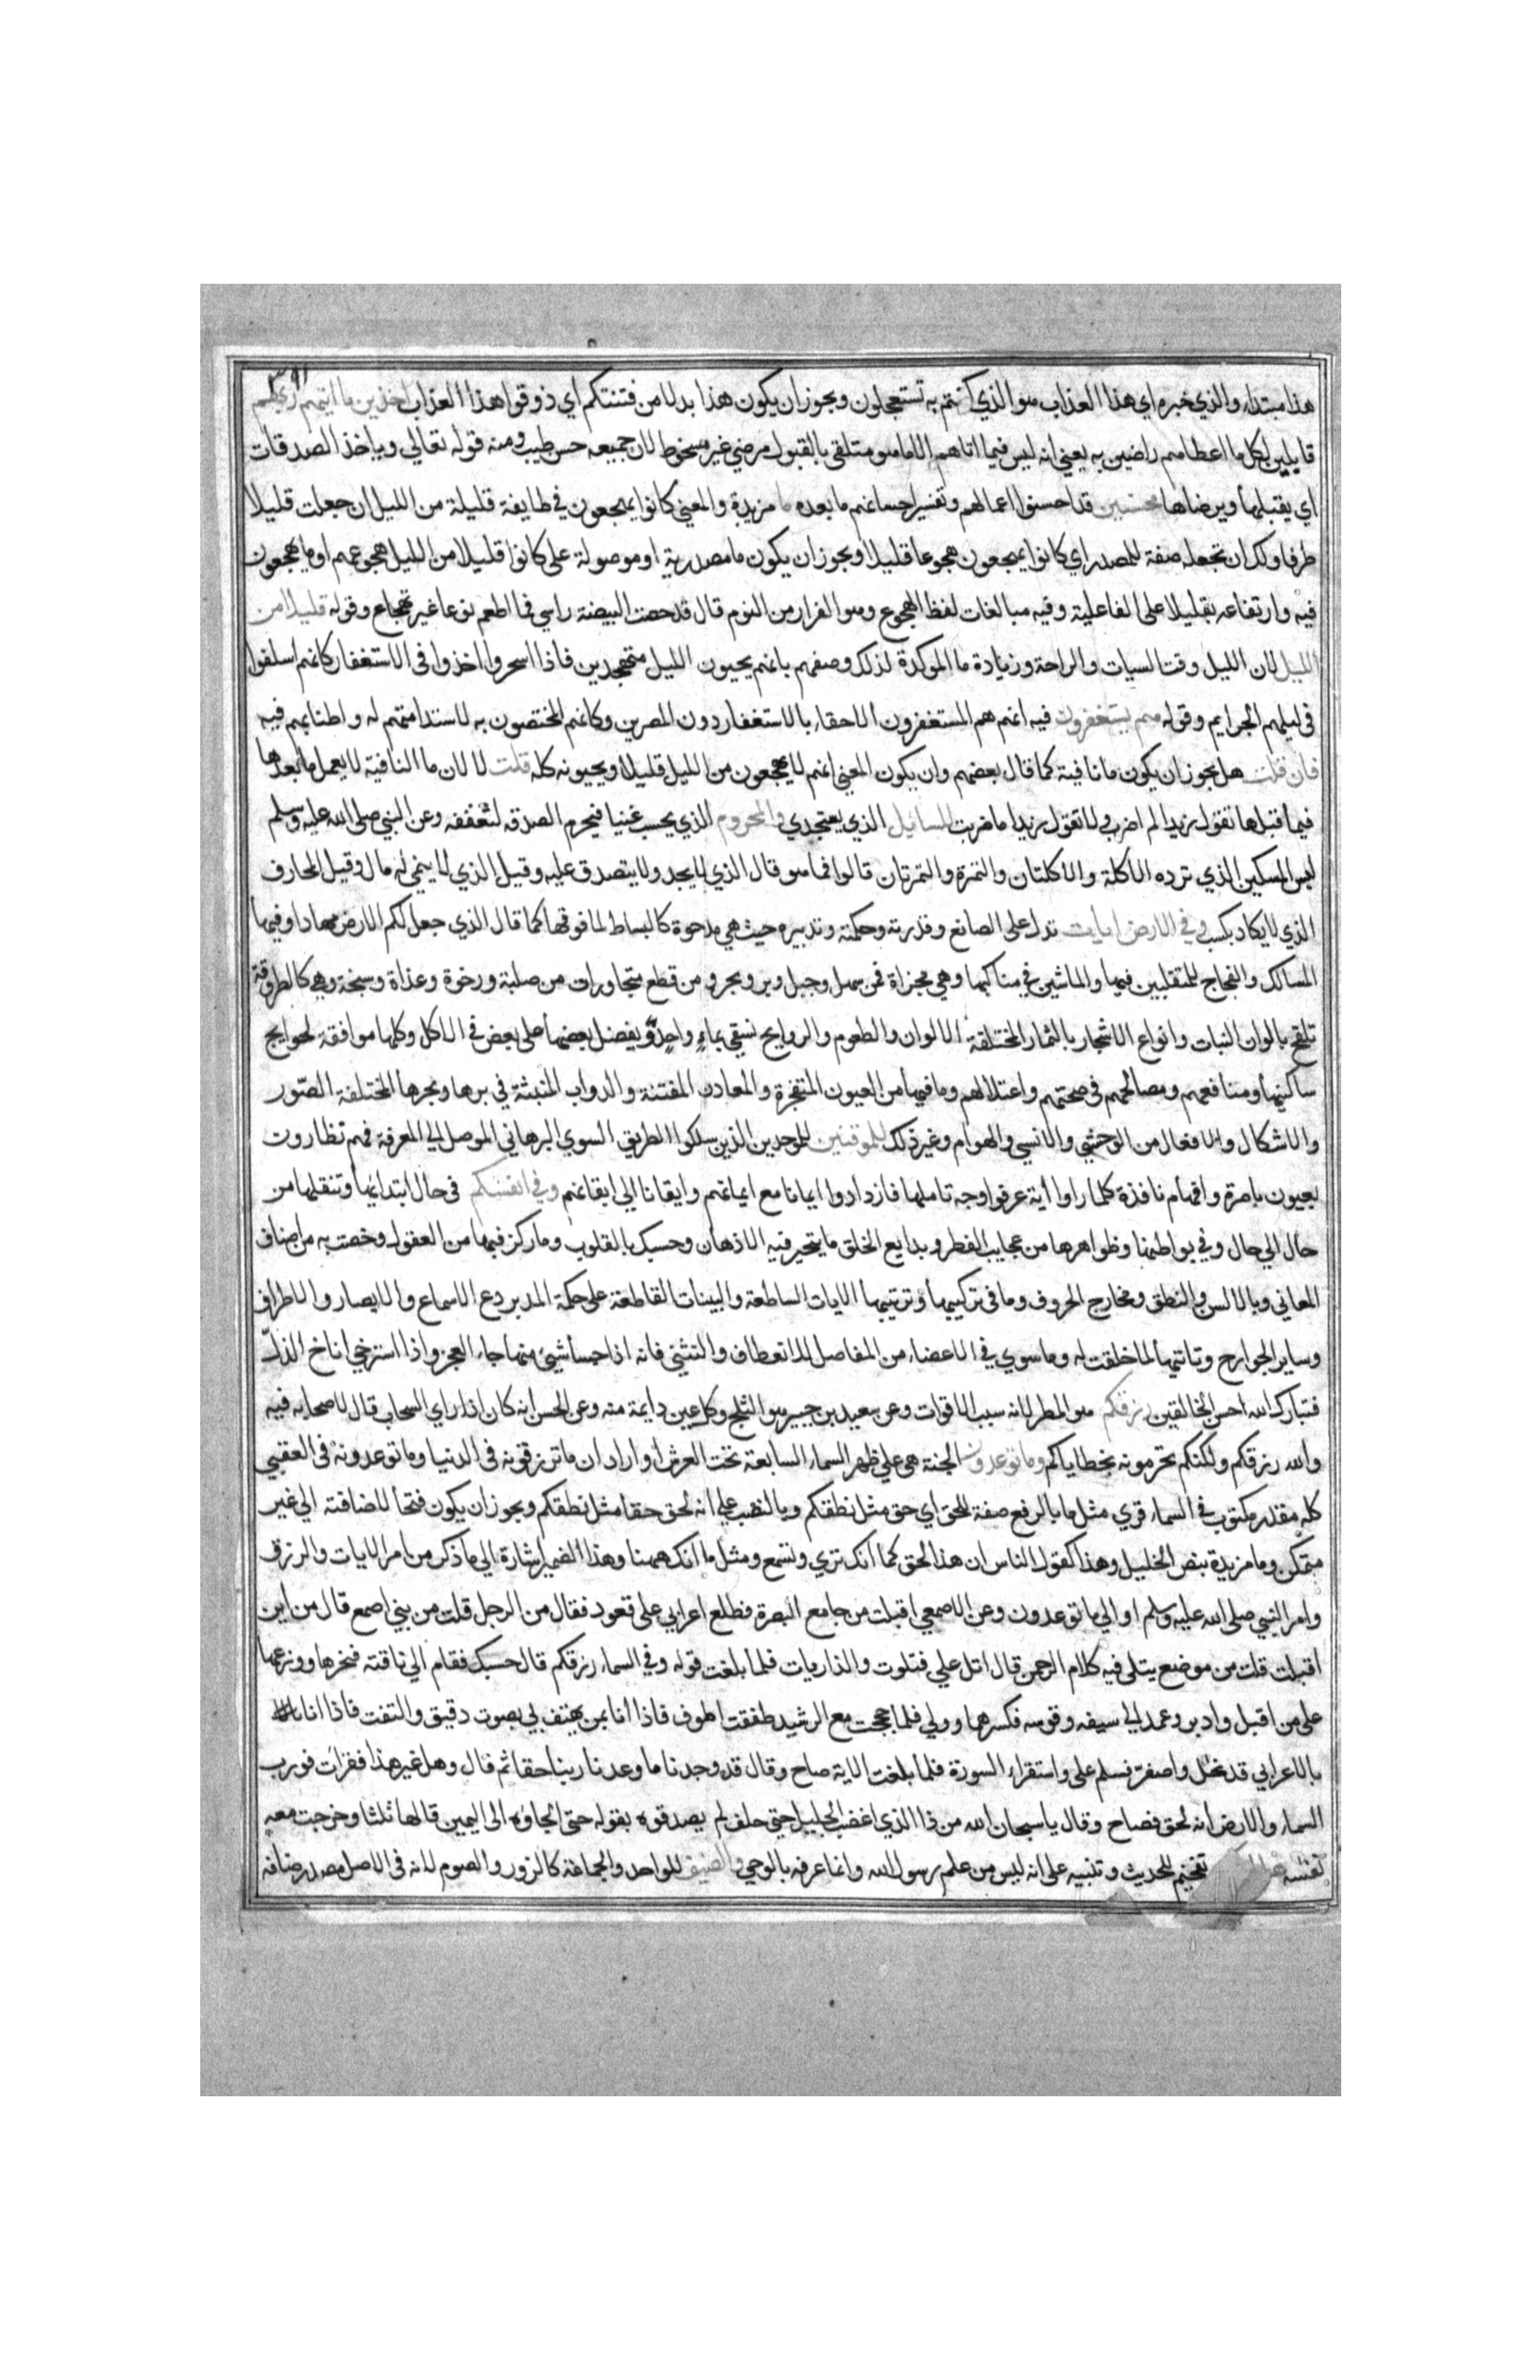 ٣٩١
هذا مبتداء والذي خبره اي هذا العذاب هو الذي كنتم به تستعجلون ويجوز ان يكون هذا بدلا من فتنتكم اي ذوقوا هذا العذاب اخذين ما اتيهم ربهم
قابلين لكل ما اعطاهم راضين به يعني انه ليس فيما اتاهم الا ما هو متلقى بالقبول مرضي غير مسخوط لان جميعه حسن طيب ومنه قوله تعالي وياخذ الصدقات
اي يقبلها ويرضاها محسنين قد احسنوا اعمالهم وتفسير احسانهم ما بعده ما مزيدة والمعني كانوا يهجعون في طايفة قليلة من الليل ان جعلت قليلا
ظرفا ولك ان تجعله صفة للمصدر اي كانوا يهجعون هجوعا قليلا ويجوز ان يكون ما مصدرية او موصولة على كانوا قليلا من الليل هجوعهم او ما يهجعون
فيه وارتفاعه بقليلا على الفاعلية وفيه مبالغات لفظ الهجوع وهو الفرار من النوم قال قد حصت البيضة راسي فما اطعم نوعا غير تهجاع وقوله قليلا من
الليل لان الليل وقت السبات والراحة وزيادة ما الموكدة لذلك وصفهم بانهم يحيون الليل متهجدين فاذا اسحروا اخذوا في الاستغفار كانهم اسلفوا
في ليلهم الجرايم وقوله هم يستغفرون فيه انهم هم المستغفرون الاحقاء بالاستغفار دون المصرين وكانهم المختصون به لاستدامتهم له واطنابهم فيه
فان قلت هل يجوز ان يكون ما نافية كما قال بعضهم وان يكون المعني انهم لا يهجعون من الليل قليلا ويحيونه كله قلت لا لان ما النافية لا يعمل ما بعدها
فيما قبلها تقول زيدا لم اضرب ولا تقول زيدا ما ضربت للسايل الذي يستجدي والمحروم الذي يحسب غنيا فيحرم الصدقه لتعففه وعن النبي صلى الله عليه وسلم
ليس المسكين الذي ترده الاكلة والاكلتان والتمرة والتمرتان قالوا فما هو قال الذي لا يجد ولا يتصدق عليه وقيل الذي لا ينمي له مال وقيل المحارف
الذي لا يكاد يكسب وفي الارض ايات تدل على الصانع وقدرته وحكمته وتدبيره حيث هي مدحوة كالبساط لما فوقها كما قال الذي جعل لكم الارض مهادا وفيها
المسالك والفجاج للمتقلبين فيها والماشين في مناكبها وهي مجزاة فمن سهل وجبل وبر وبحر و من قطع متجاورات من صلبة ورخوة وعذاة وسبخة وهي كالطروقة
تلقح بالوان النبات وانواع الاشجار بالثمار المختلفة الالوان والطعوم والروايح تسقي بماء واحد ويفضل بعضها على بعض في الاكل وكلها موافقة لحوايج
ساكنيها ومنافعهم ومصالحهم في صحتهم واعتلالهم وما فيها من العيون المتفجرة والمعادن المفتنة والدواب المنبثة في برها وبحرها المختلفة الصور
والاشكال والافعال من الوحشي والانسي والهوام وغير ذلك للموقنين للموحدين الذين سلكوا الطريق السوي البرهاني الموصل الى المعرفة فهم نظارون
بعيون باصرة وافهام نافذة كلما راوا اية عرفوا وجه تاملها فازدادوا ايمانا مع ايمانهم وايقانا الى ايقانهم وفي انفسكم في حال ابتدائها وتنقلها من
حال الي حال وفي بواطنها وظواهرها من عجايب الفطر وبدايع الخلق ما يتحير فيه الاذهان وحسبك بالقلوب وما ركز فيها من العقول وخصت به من اصناف
المعاني وبالالسن والنطق ومخارج الحروف وما في تركيبها وترتيبها الايات الساطعة والبينات القاطعة على حكمة المدبر دع الاسماع والابصار والاطراف
وساير الجوارح وتاتيها لما خلقت له وما سوي في الاعضاء من المفاصل للانعطاف والتثني فانه اذا جسا شيئ منها جاء العجز واذا استرخي اناخ الذل
فتبارك الله احسن الخالقين رزقكم هو المطر لانه سبب الاقوات وعن سعيد بن جبير هو الثلج وكل عين دايمة منه وعن الحسن انه كان اذا راي السحاب قال لاصحابه فيه
والله رزقكم ولكنكم تحرمونه بخطاياكم وما توعدون الجنة هي علي ظهر السماء السابعة تحت العرش او اراد ان ما ترزقونه في الدنيا وما توعدونه في العقبي
كله مقدر مكتوب في السماء قري مثل ما بالرفع صفة للحق اي حق مثل نطقكم وبالنصب علي انه لحق حقا مثل نطقكم ويجوز ان يكون فتحا لاضافته الي غير
متمكن وما مزيدة بنص الخليل وهذا كقول الناس ان هذا لحق كما انك تري وتسمع ومثل ما انك ههنا وهذا الضمير اشارة الي ما ذكر من امر الايات والرزق
وامر النبي صلى الله عليه وسلم او الي ما توعدون وعن الاصمعي اقبلت من جامع البصرة فطلع اعرابي على قعود فقال من الرجل قلت من بني اصمع قال من اين
اقبلت قلت من موضع يتلى فيه كلام الرحمن قال اتل علي فتلوت والذاريات فلما بلغت قوله وفي السماء رزقكم قال حسبك فقام الي ناقته فنحرها ووزعها
على من اقبل وادبر وعمد الى سيفه وقوسه فكسرهما وولي فلما حججت مع الرشيد طفقت اطوف فاذا انا بمن يهتف بي بصوت دقيق والتفت فاذا انا
بالاعرابي قد نحل واصفر فسلم على واستقراء السورة فلما بلغت الاية صاح وقال قد وجدنا ما وعدنا ربنا حقا ثم قال وهل غير هذا فقرات فورب
السماء والارض انه لحق فصاح وقال يا سبحان الله من ذا الذي اغضب الجليل حتى حلف لم يصدقوه بقوله حتى الجاوه الى اليمين قالها ثلثا وخرجت معه
نفسه تفخيم للحديث وتنبيه على انه ليس من علم رسول الله وانما عرفه بالوحي والضيف للواحد والجماعة كالزور والصوم لانه في الاصل مصدر ضافه